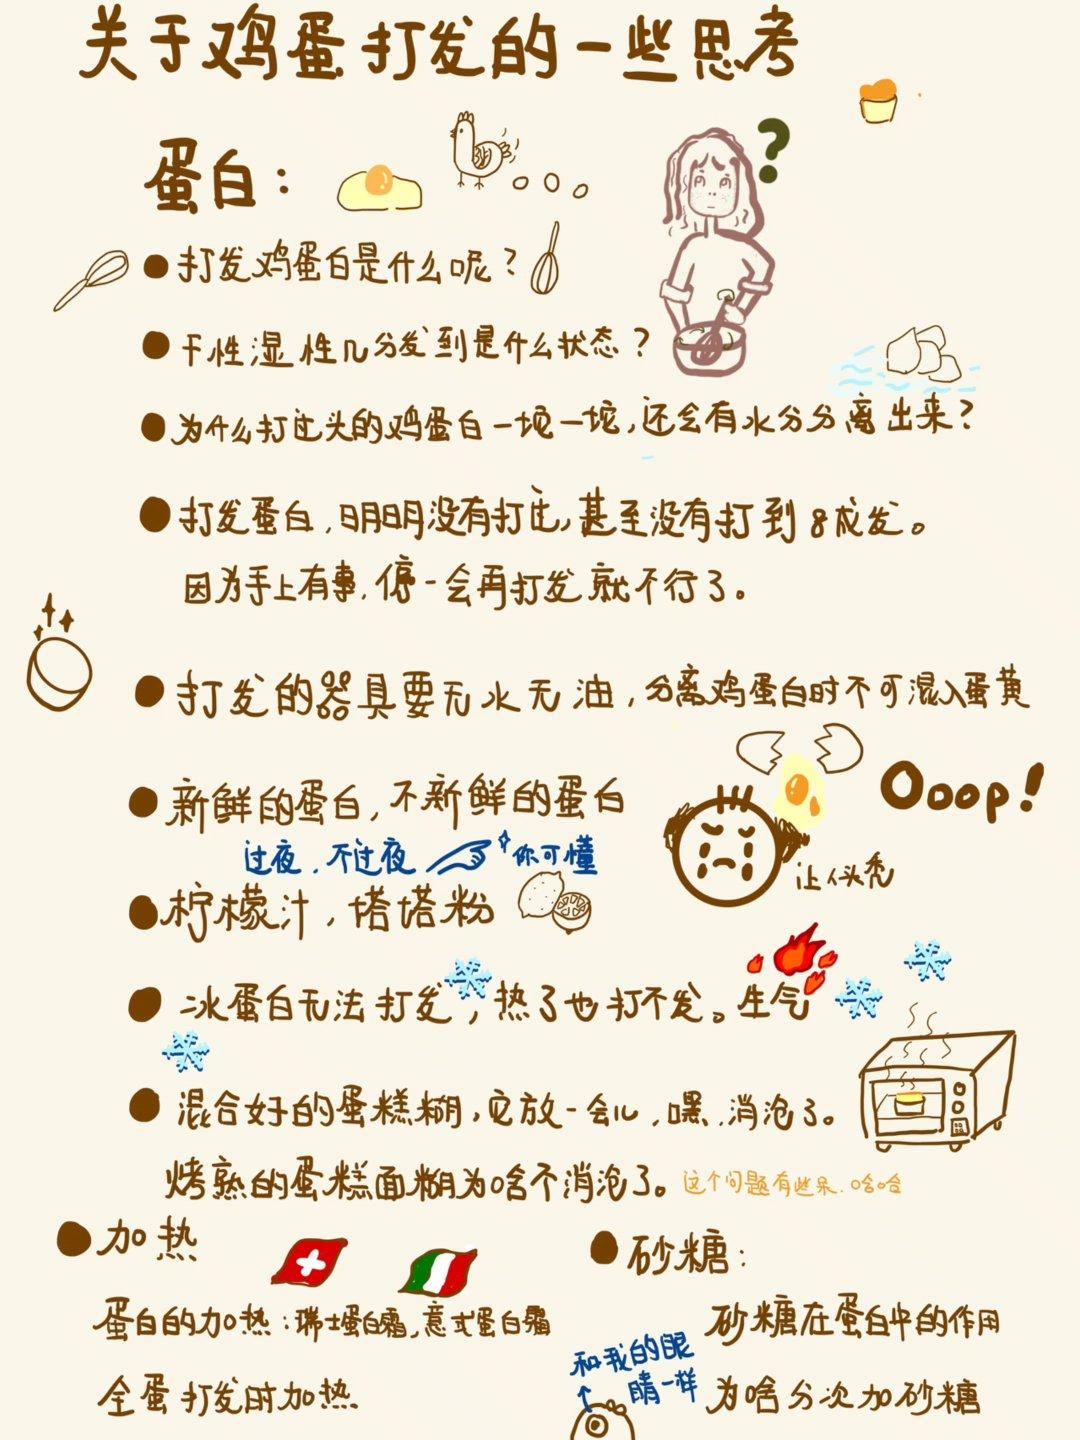 关于鸡蛋打发的一些思考
蛋白：
打发鸡蛋白是什么呢？
干性湿性几分发到是什么状态？
为什么打过头的鸡蛋白一坨一坨，还会有水分分离出来？
打发蛋白，明明没有打过，甚至没有打到8成发。
因为手上有事，停一会再打发就不行了。
打发的器具要无水无油，分离鸡蛋白时不可混入蛋黄
Ooop！
新鲜的蛋白，不新鲜的蛋白
过夜，不过夜 你可懂
让人头秃
柠檬汁，塔塔粉
冰蛋白无法打发，热了也打不发。生气
混合好的蛋糕糊，它放一会儿，嘿，消泡了。
烤熟的蛋糕面糊为啥不消泡了。这个问题有些呆，哈哈
加热
蛋白的加热：瑞士蛋白霜，意式蛋白霜
全蛋打发时加热
砂糖：
砂糖在蛋白中的作用
为啥分次加砂糖
和我的眼
睛一样